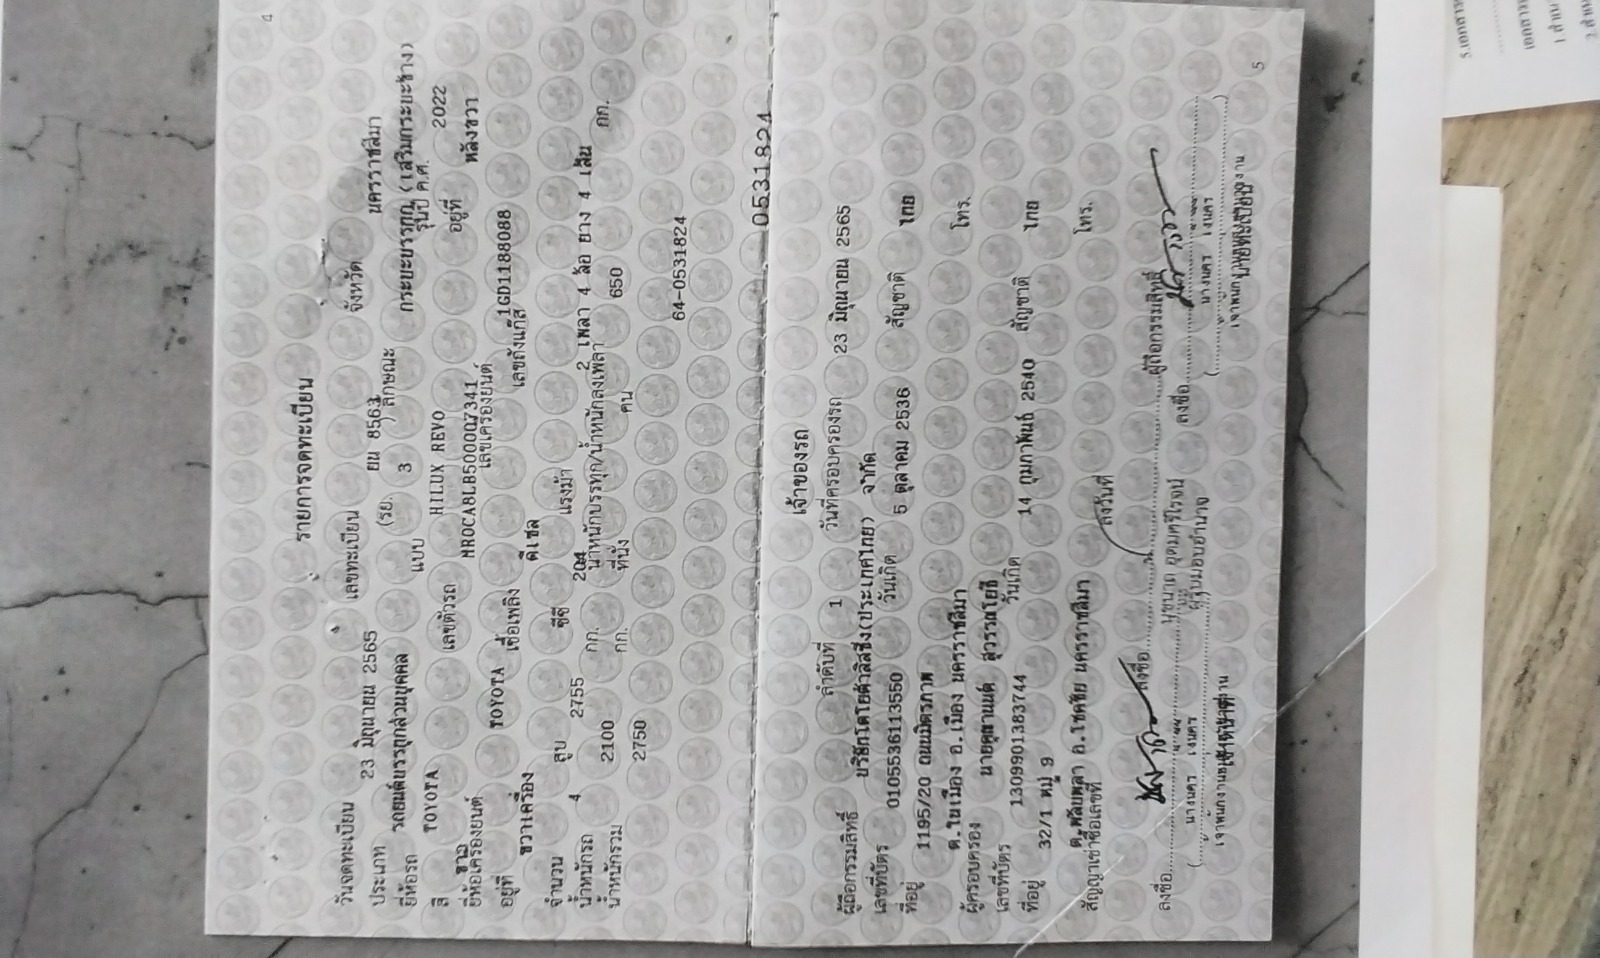 4
รายการจดทะเบียน
วันจดทะเบียน 23 มิถุนายน 2565 เลขทะเบียน ยน 8563 จังหวัด นครราชสีมา
ประเภท รถยนต์บรรทุกส่วนบุคคล (รย. 3 ลักษณะ กระบะบรรทุก (เสริมกระบะข้าง)
ยี่ห้อรถ TOYOTA แบบ HILUX REVO รุ่นปี ค.ศ. 2022
สี ขาว เลขตัวรถ อยู่ที่ หลังขวา
ยี่ห้อเครื่องยนต์ TOYOTA เลขเครื่องยนต์ 1GD1188088
อยู่ที่ ขวาเครื่อง เชื้อเพลิง ดีเซล เลขถังแก๊ส
จำนวน 4 สูบ 2755 ซีซี 204 แรงม้า 2 เพลา 4 ล้อ ยาง 4 เส้น
น้ำหนักรถ 2100 กก. น้ำหนักบรรทุก/น้ำหนักลงเพลา 650 กก.
น้ำหนักรวม 2750 กก. ที่นั่ง คน
64-0531824
0531824
เจ้าของรถ
ลำดับที่ 1 วันที่ครอบครองรถ 23 มิถุนายน 2565
ผู้ถือกรรมสิทธิ์ บริษัทโตโยต้าลิสซิ่ง(ประเทศไทย) จำกัด
เลขที่บัตร 0105536113550 วันเกิด 5 ตุลาคม 2536 สัญชาติ ไทย
ที่อยู่ 1195/20 ถนนมิตรภาพ
ต.ในเมือง อ.เมือง นครราชสีมา โทร.
ผู้ครอบครอง
เลขที่บัตร 1309901383744 วันเกิด 14 กุมภาพันธ์ 2540 สัญชาติ ไทย
ที่อยู่ 32/1 หมู่ 9
ต.พลับพลา อ.โชคชัย นครราชสีมา โทร.
สัญญาเช่าซื้อเลขที่ ลงวันที่
ลงชื่อ ลงชื่อ ผู้ถือกรรมสิทธิ์
ลงชื่อ
ผู้รับมอบอำนาจ
นายทะเบียน
5